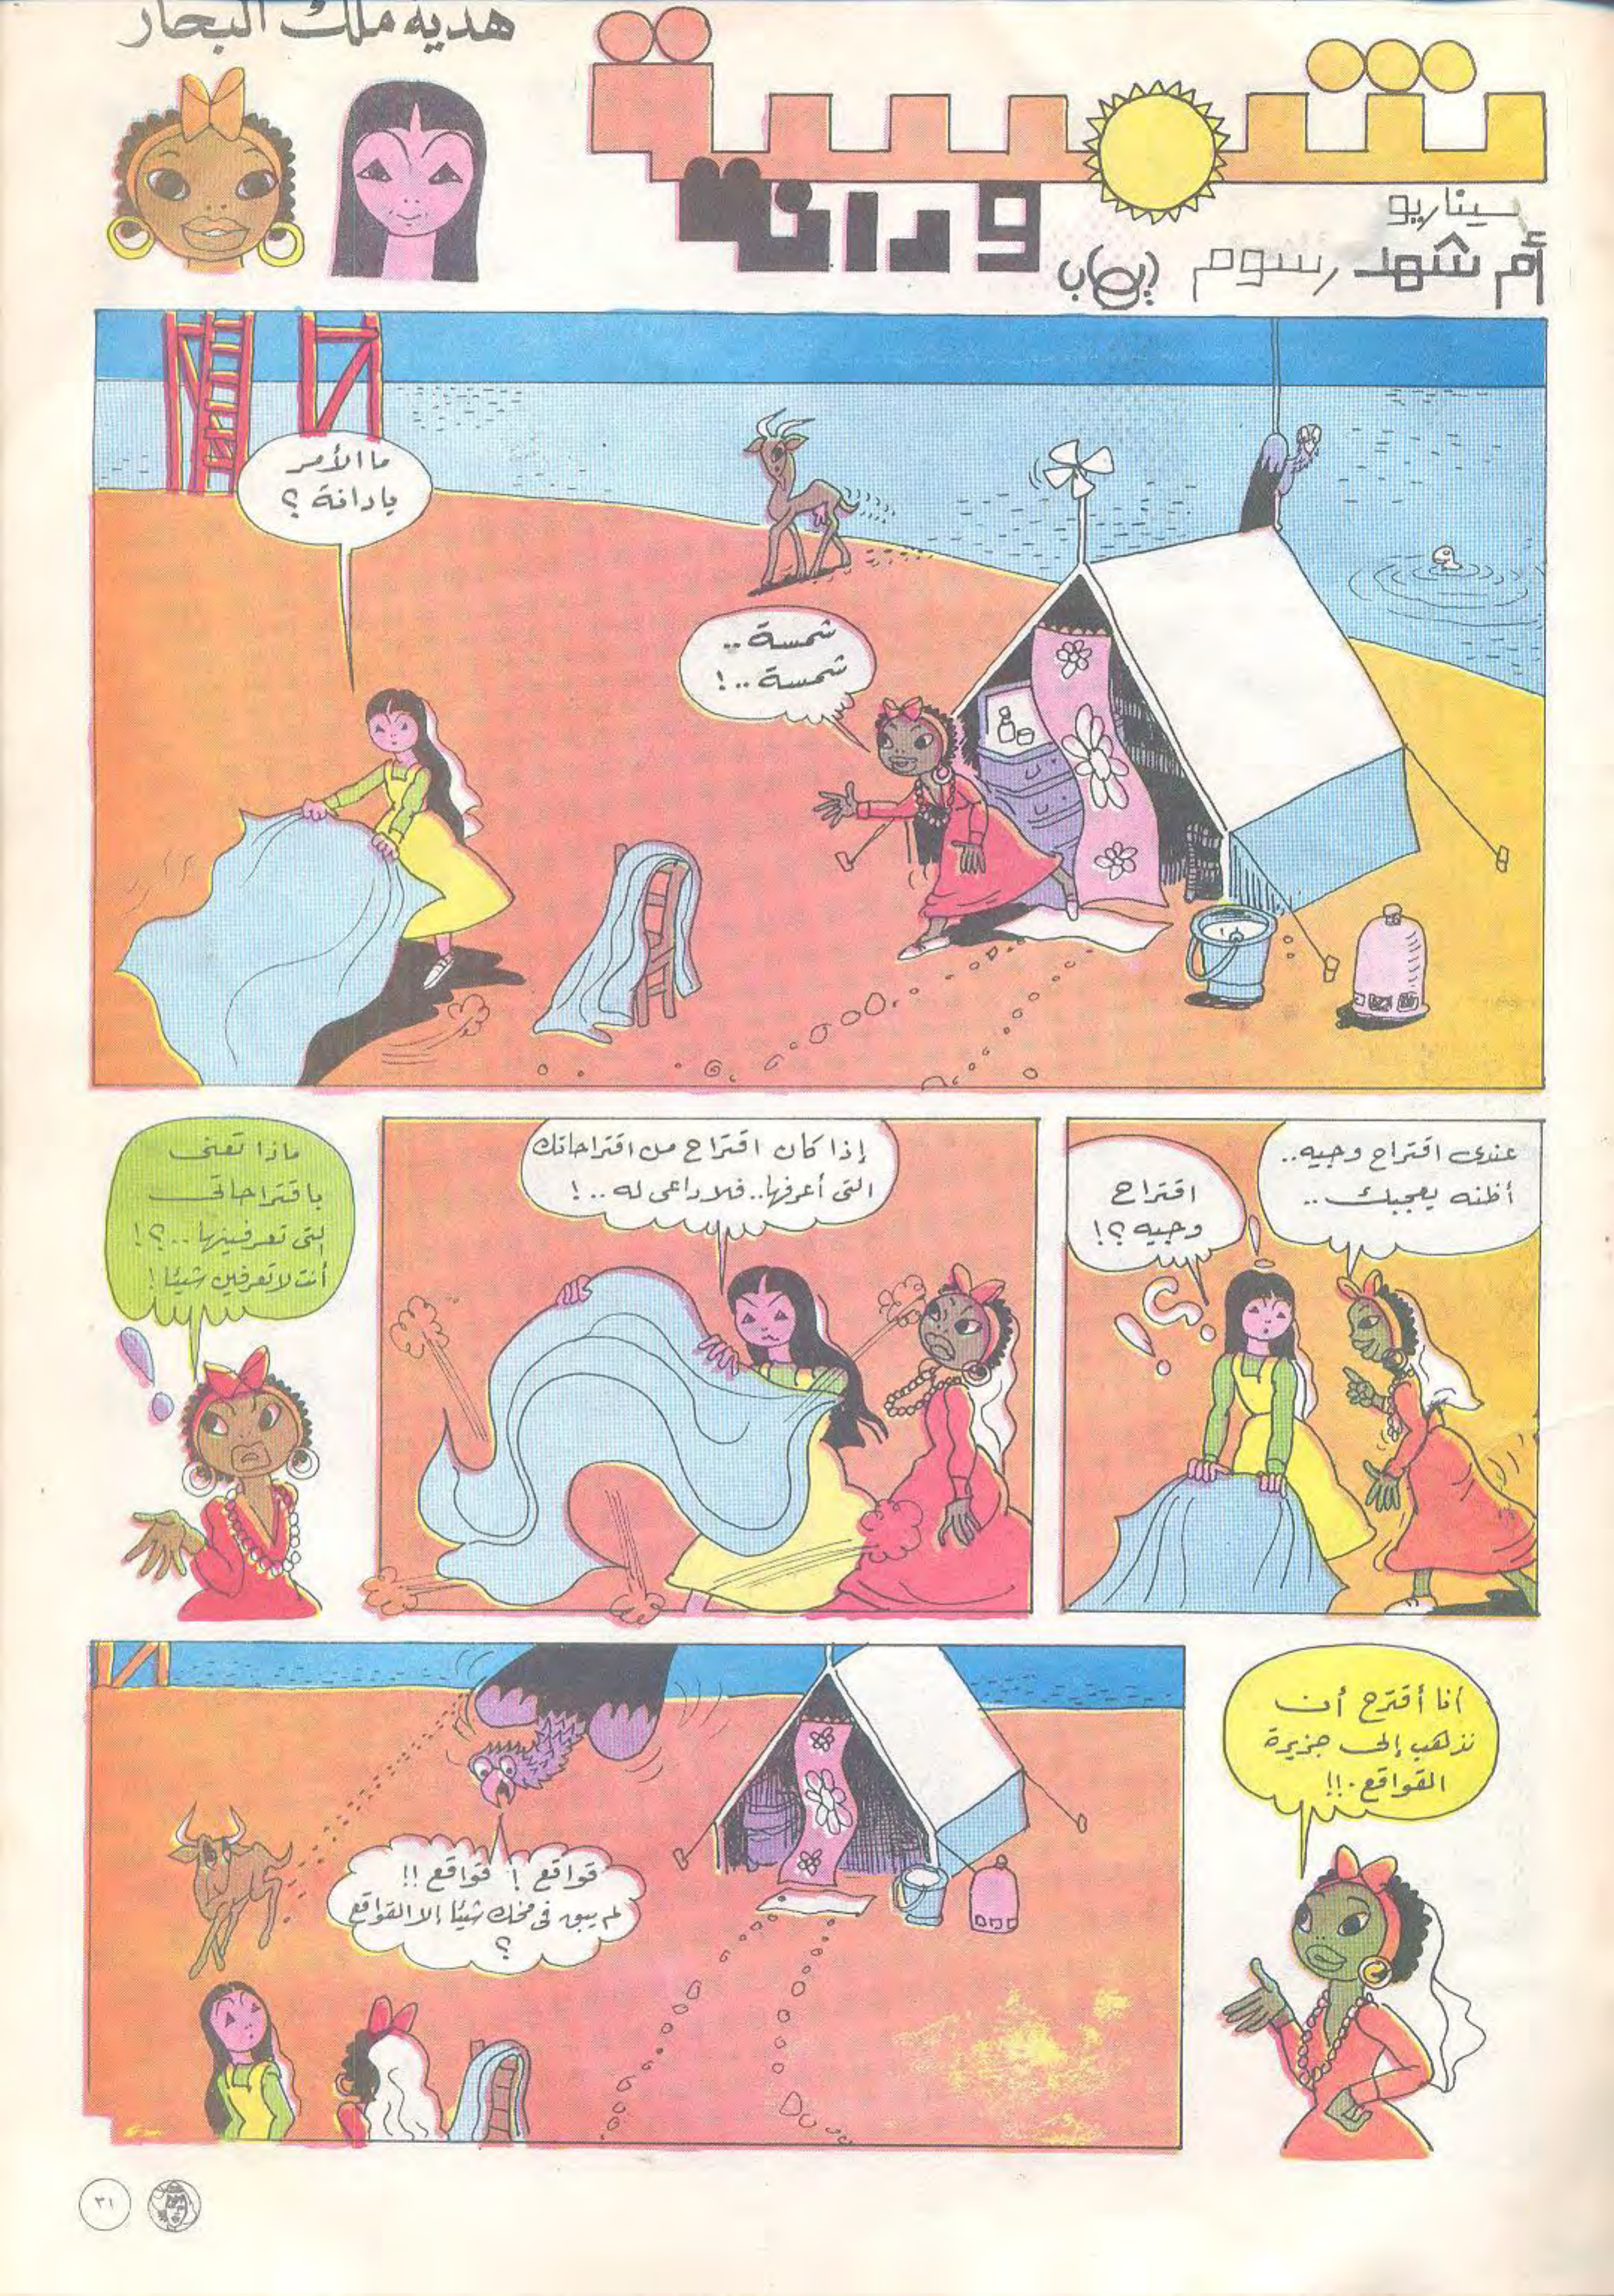 هدية ملك البحار
شمسة
ودانة
سيناريو
أم شهد رسوم إيهاب
شمسة ..
شمسة ..!
ما الأمر
يا دانة ؟
عندى اقتراح وجيه..
أظنه يعجبك ..
اقتراح
وجيه ؟!
إذا كان اقتراح من اقتراحاتك
التى أعرفها.. فلا داعى له ..!
ماذا تعنى
باقتراحاتى
التى تعرفينها ..؟!
أنت لا تعرفين شيئا !
أنا أقترح أن
نذهب إلى جزيرة
القواقع .!!
قواقع ! قواقع !!
لم يبق فى مخك شيئا إلا القواقع
؟
٣١